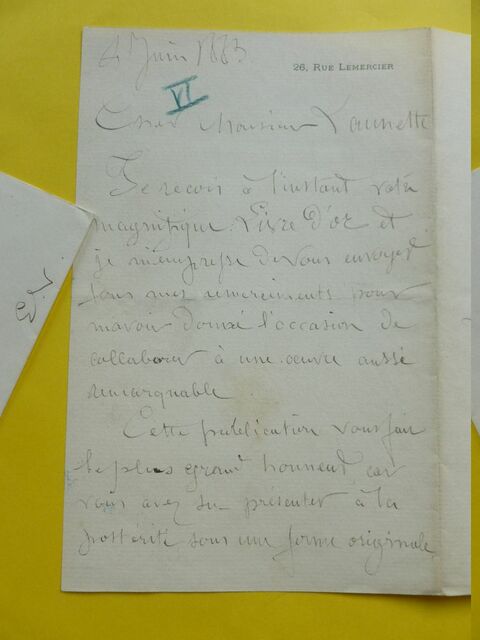 4 Juin 1883
26, RUE LEMERCIER
VI
Cher Monsieur Launette
Je reçois à l'instant votre
magnifique Livre d'or et
je m'empresse de vous envoyer
tous mes remerciments pour
m'avoir donné l'occasion de
collaborer à une œuvre aussi
remarquable.
Cette publication vous fait
le plus grand honneur car
vous avez su présenter à la
postérité sous une forme originale